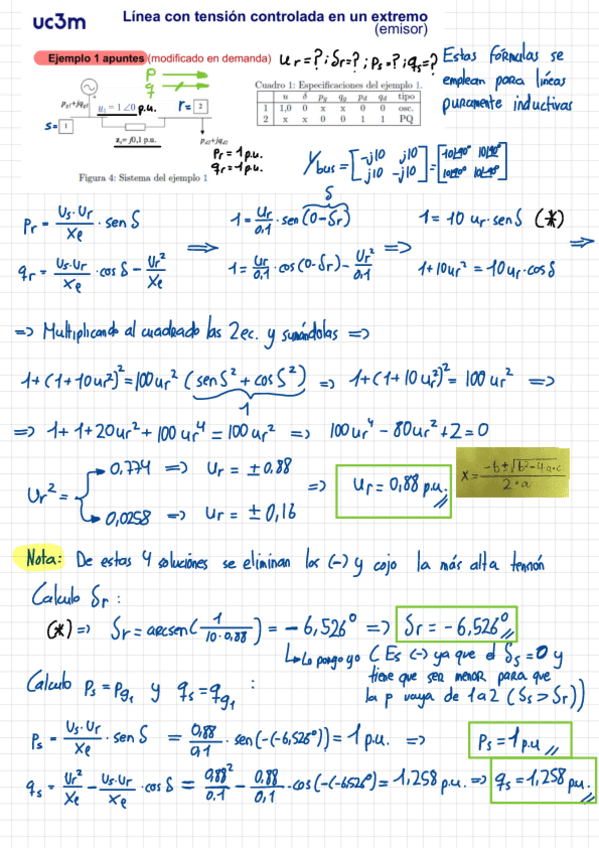 uc3m
Línea con tensión controlada en un extremo
(emisor)
Ejemplo 1 apuntes (modificado en demanda) Ur=? ; δr=? ; Ps=? ; qs=?
Estas fórmulas se
emplean para líneas
puramente inductivas
P
q
u₁ = 1∠0 p.u.
r= 2
s= 1
zₗ= j0,1 p.u.
Pr = 1 p.u.
qr = 1 p.u.
Figura 4: Sistema del ejemplo 1
Cuadro 1: Especificaciones del ejemplo 1.
u δ pg qg pd qd tipo
1 1,0 0 x x 0 0 osc.
2 x x 0 0 1 1 PQ
Ybus = [-j10 j10; j10 -j10] = [10∟-90° 10∟90°; 10∟90° 10∟-90°]
Pr = Us·Ur/Xe · sen δ => 1 = Ur/0.1 · sen (0-δr) => 1 = 10 ur·senδ (*) =>
δ
qr = Us·Ur/Xe · cos δ - Ur²/Xe 1 = Ur/0.1 · cos (0-δr) - Ur²/0.1 1+10ur² = 10ur·cosδ
=> Multiplicando al cuadrado las 2ec. y sumándolas =>
1+(1+10ur²)² = 100ur² (senδ² + cosδ²) => 1+(1+10ur²)² = 100ur² =>
1
=> 1+1+20ur² + 100ur⁴ = 100ur² => 100ur⁴ - 80ur² + 2 = 0
Ur² = 0,774 => Ur = ±0,88
0,0258 => Ur = ±0,16
=> Ur = 0,88 p.u.
x = -b±√b²-4a·c / 2·a
Nota: De estas 4 soluciónes se eliminan los (-) y cojo la más alta tensión
Calculo δr :
(*) => δr = arcsen(1/10·0,88) = -6,526° => δr = -6,526°
Lo pongo yo (Es (-) ya que el δs=0 y
tiene que ser menor para que
la p vaya de 1 a 2 (δs > δr))
Calculo Ps = Pg₁ y qs = qg₁ :
Ps = Us·Ur/Xe · sen δ = 0,88/0.1 · sen(-(-6,526°)) = 1 p.u. => Ps = 1 p.u
qs = Ur²/Xe - Us·Ur/Xe · cos δ = 0,88²/0.1 - 0.88/0,1 · cos(-(-6.526°)) = 1,258 p.u. => qs = 1,258 p.u.